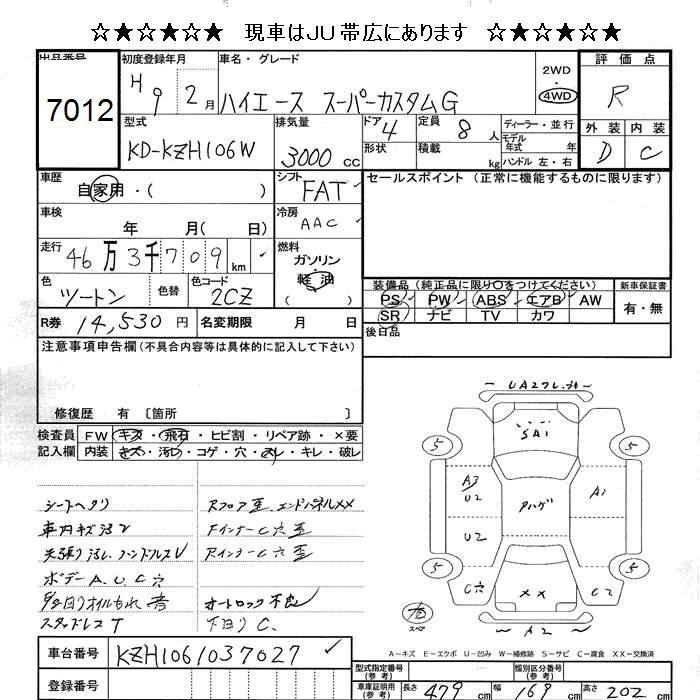 ☆★☆★☆★☆ 現車はJU帯広にあります ☆★☆★☆★☆
出品番号 7012
初度登録年月 H 9 2月
車名・グレード ハイエース スーパーカスタムG
2WD・4WD
評価点 R
外装 D 内装 C
型式 KD-KZH106W
排気量 3000 cc
ドア 4 形状
定員 8 人
積載 kg
ディーラー・並行
モデル年式 年
ハンドル 左・右
車歴 自家用・( )
シフト FAT
セールスポイント (正常に機能するものに限ります)
車検 年 月( 日)
冷房 AAC
走行 46万3千709 km
燃料 ガソリン 軽油
色 ツートン 色替 色コード 2CZ
装備品 (純正品に限り○をつけてください) 新車保証書
PS PW ABS エアB AW 有・無
SR ナビ TV カワ
R券 14,530 円 名変期限 月 日
後日品
注意事項申告欄(不具合内容等は具体的に記入して下さい)
修復歴 有 〔箇所 〕
検査員 FW キズ・飛石・ヒビ割・リペア跡・×要
記入欄 内装 キズ・汚れ・コゲ・穴・スレ・キレ・破レ
シートヘタリ
車内キズ汚レ
天張り汚レ ハンドルスレ
ボデーA、U、C穴
オイルもれ
スタッドレスT
Rフロア歪 エンドパネルXX
FインナーC穴歪
RインナーC穴歪
オートロック不良
下回りC
UA27
SA1
5
5
A3
U2
A1
アハゲ
U2
5
5
C穴
XX
C2
スペア
A2
A-キズ E-エクボ U-凹み W-補修跡 S-サビ C-腐食 XX-交換済
車台番号 KZH1061037027
登録番号
型式指定番号(参考) 類別区分番号(参考)
車庫証明用(参考) 長さ 479 cm 幅 169 cm 高さ 202 cm